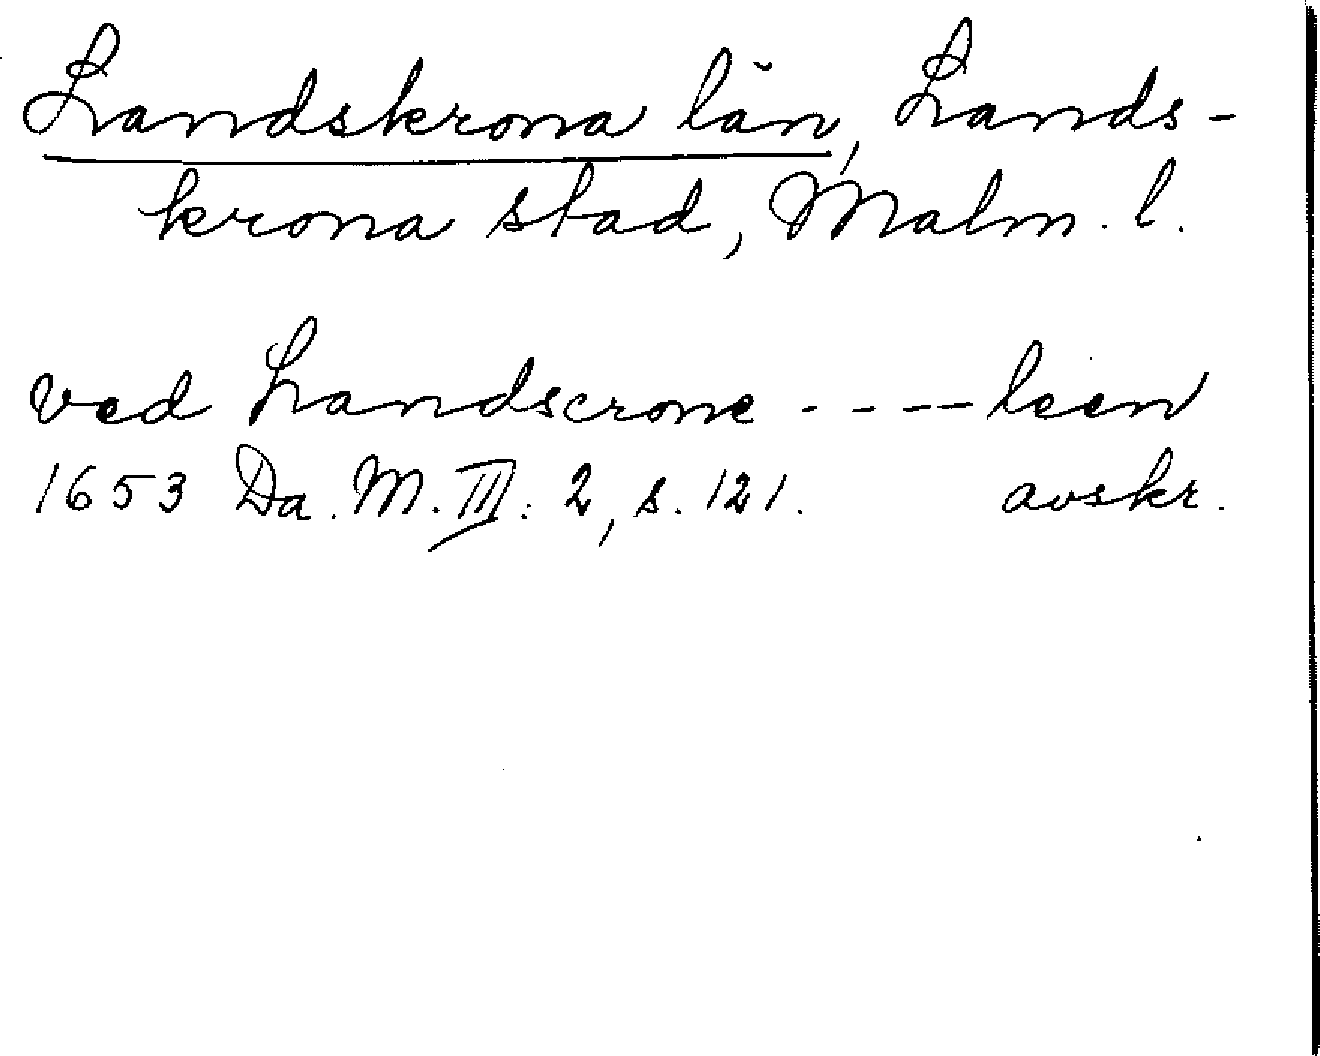 Landskrona län, Lands-
krona stad, Malm. l.
ved Landscrone ---- leen
1653 Da. M. III: 2, s. 121. avskr.